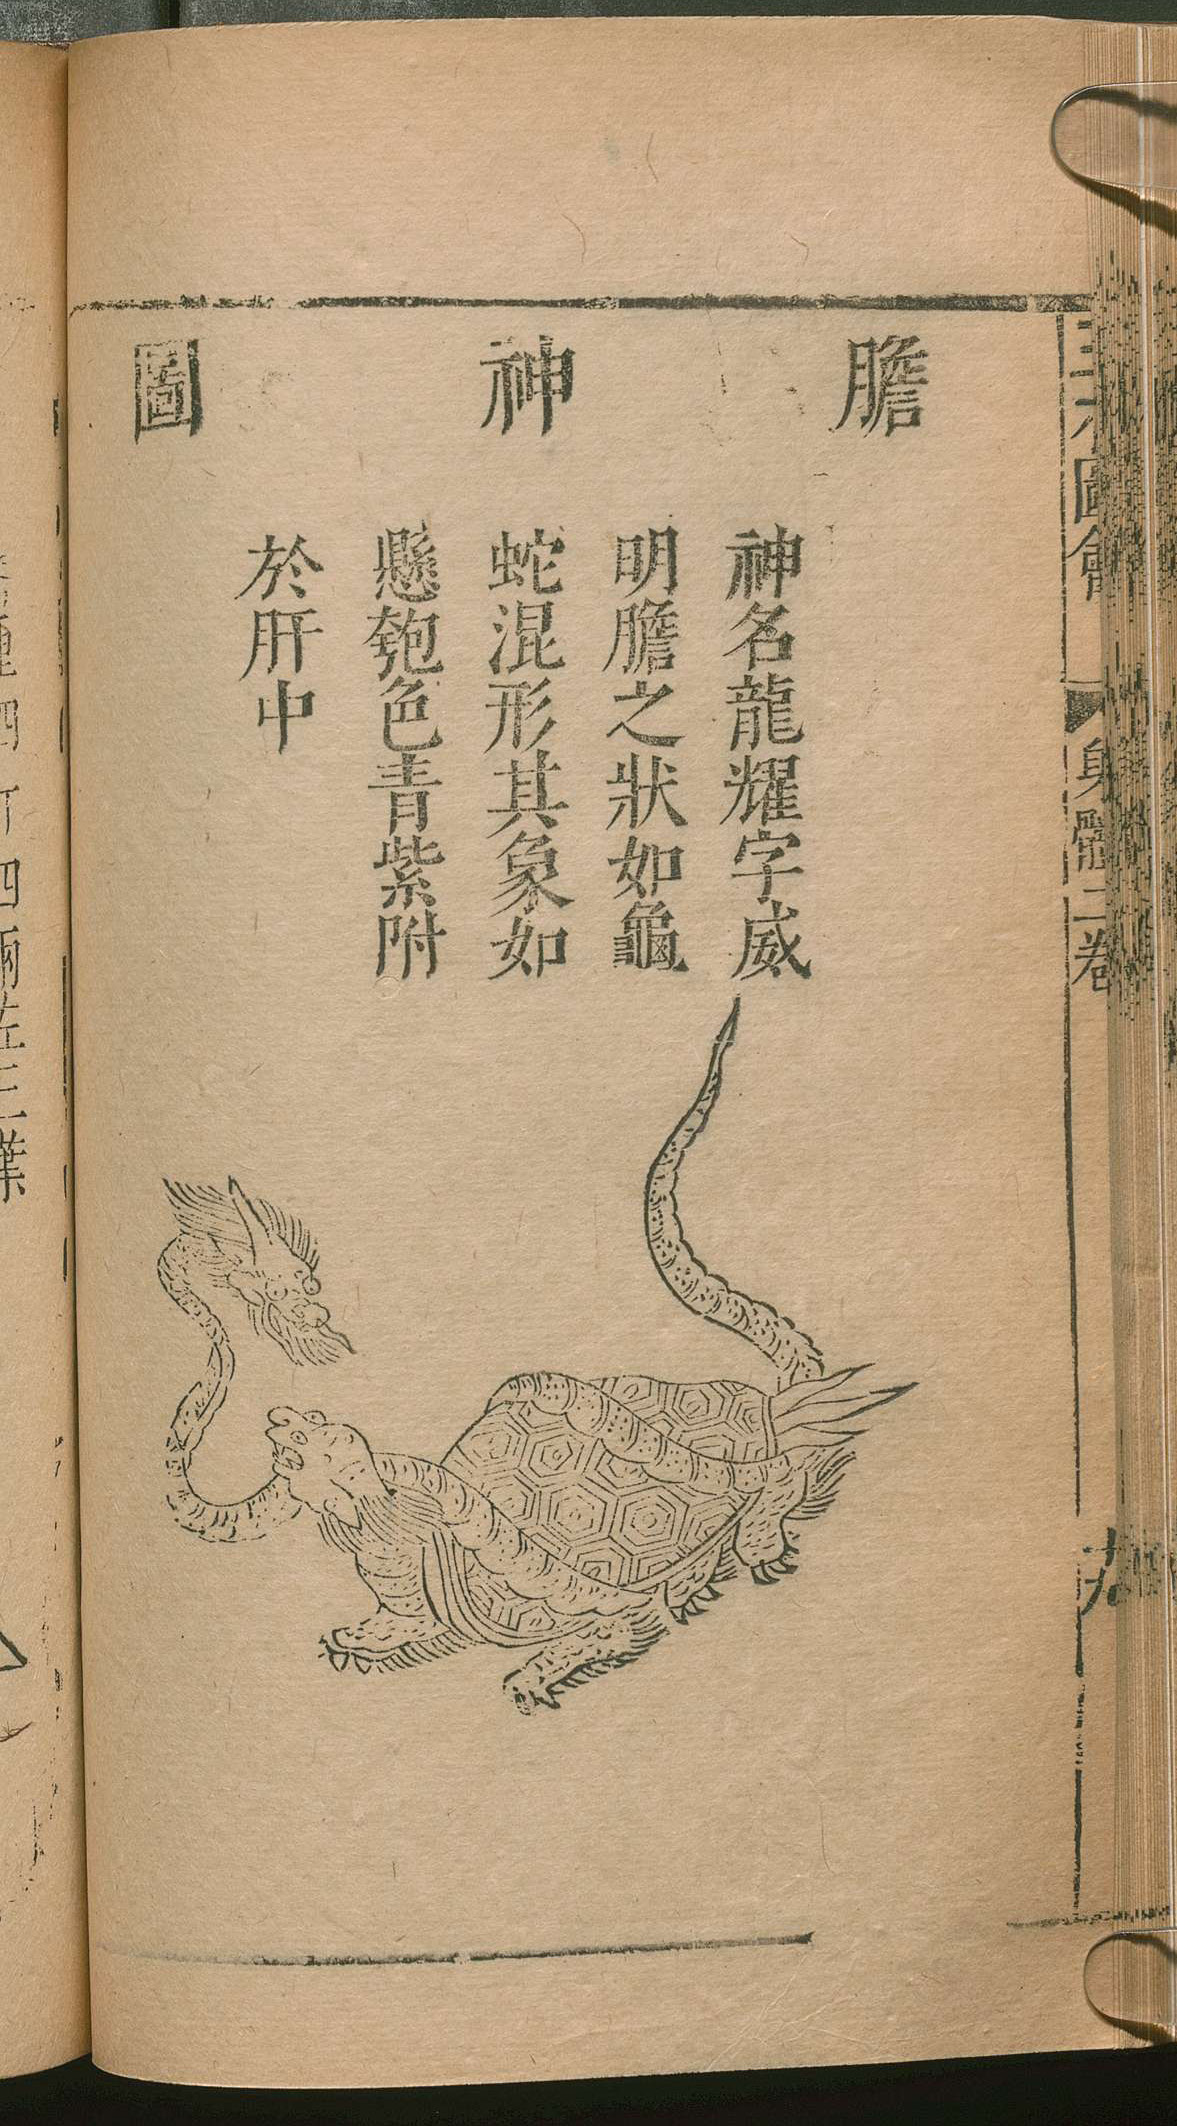 三才圖會
身體二卷
十九
膽神圖
神名龍耀字威
明膽之狀如龜
蛇混形其象如
懸匏色青紫附
於肝中
四兩左三葉